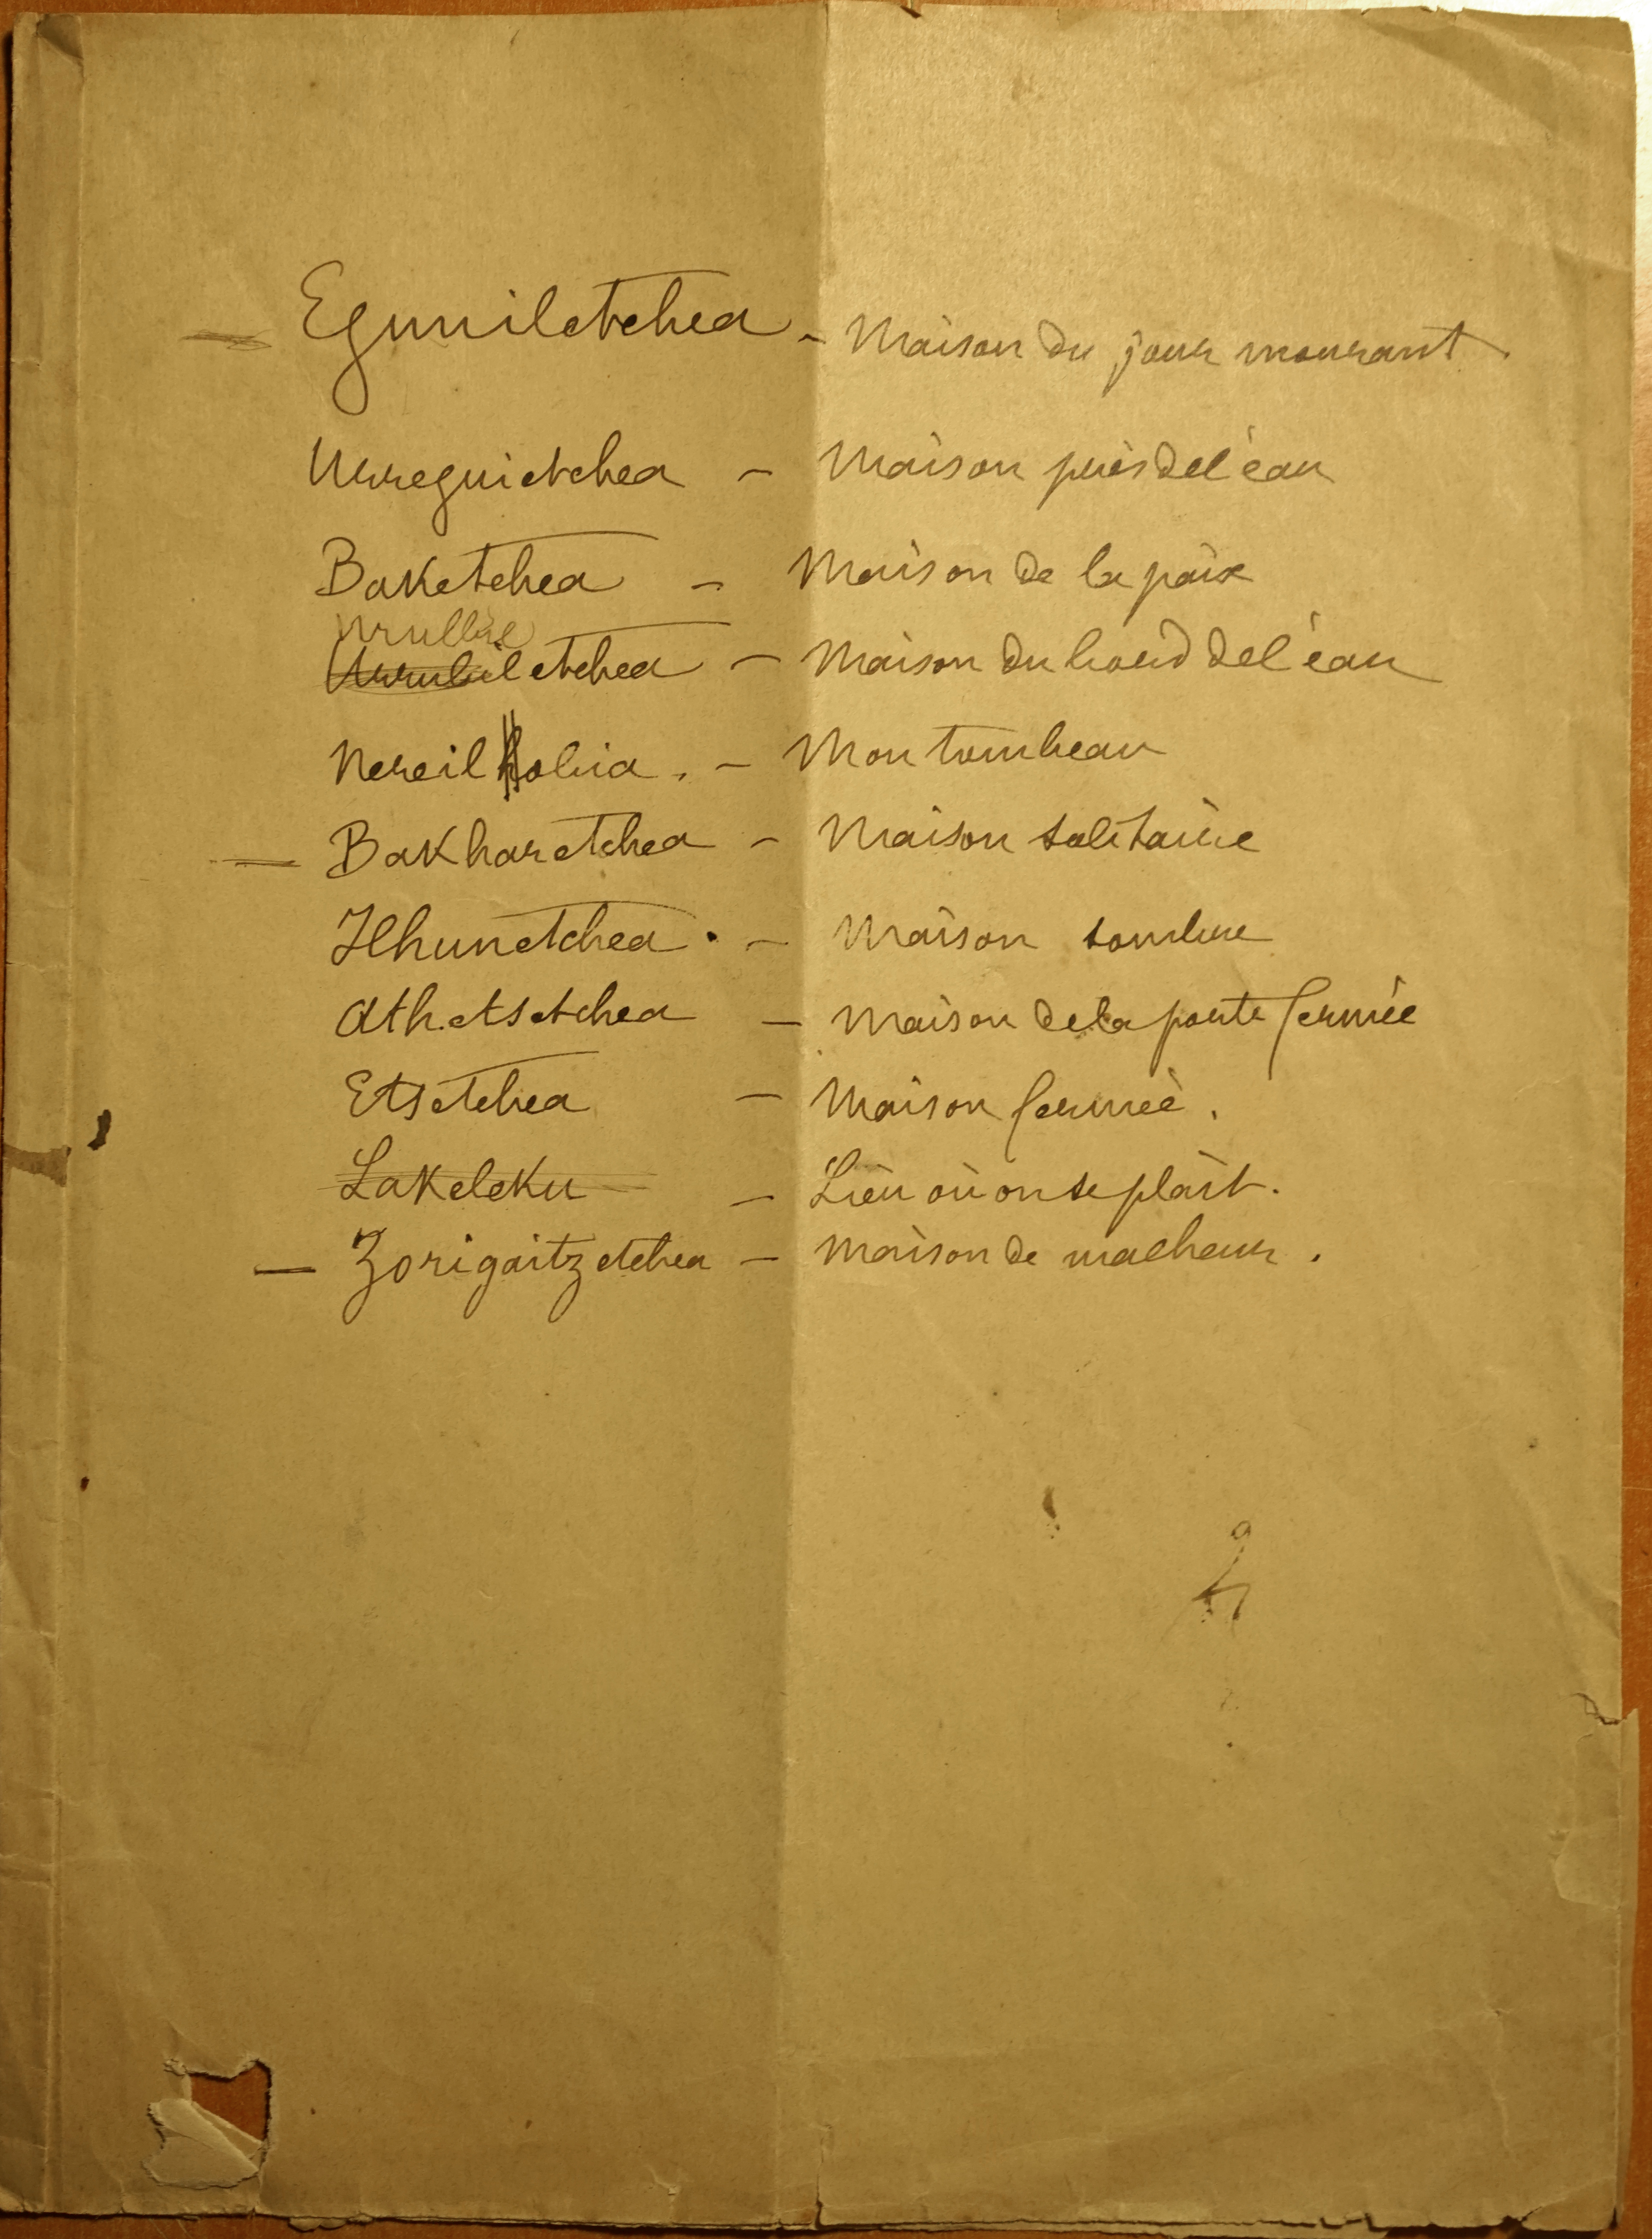 — Eguniletchea - Maison du jour mourant.
Urreguietchea - Maison près de l'eau
Baketchea - Maison de la paix
Urulbil
Urrubiletchea - Maison du bord de l'eau
Nereil hobia. - Mon tombeau
— Bakharetchea - Maison solitaire
Ilhunetchea. - Maison sombre
Athetsetchea - Maison de la porte fermée
Etsetchea - Maison fermée.
Lakeleku - Lieu où on se plaît.
— Zorigaitzetchea - Maison de malheur.